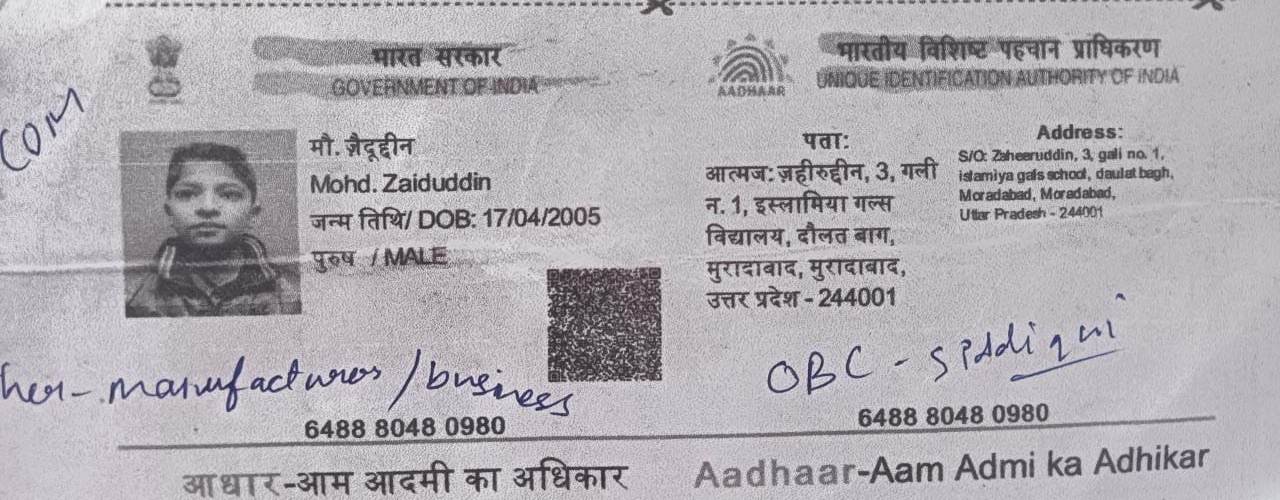 COM
भारत सरकार
GOVERNMENT OF INDIA
मौ. ज़ैदूद्दीन
Mohd. Zaiduddin
जन्म तिथि/ DOB: 17/04/2005
पुरुष / MALE
manufactures / business
6488 8048 0980
आधार-आम आदमी का अधिकार
AADHAAR
भारतीय विशिष्ट पहचान प्राधिकरण
UNIQUE IDENTIFICATION AUTHORITY OF INDIA
पता:
आत्मज: ज़हीरुद्दीन, 3, गली
न. 1, इस्लामिया गल्स
विद्यालय, दौलत बाग,
मुरादाबाद, मुरादाबाद,
उत्तर प्रदेश - 244001
Address:
S/O: Zaheeruddin, 3, gali no. 1,
islamiya gals school, daulat bagh,
Moradabad, Moradabad,
Uttar Pradesh - 244001
OBC - Siddiqui
6488 8048 0980
Aadhaar-Aam Admi ka Adhikar